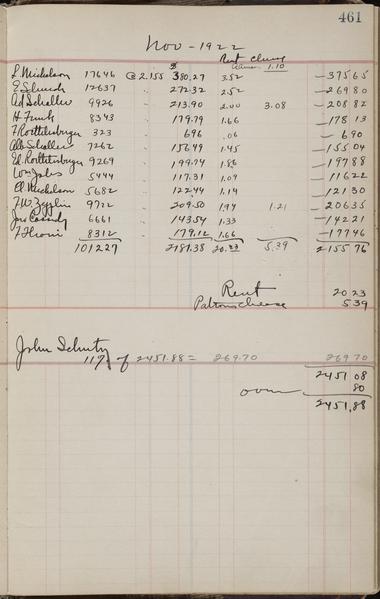 461
Nov - 1922
Rent Cheese
1.10
L Mickelson 17646 @ 2.155 $380.27 3.52 — 375 65
E Slurch 12637 " 272.32 2.52 — 269 80
Ad Schaller 9926 " 213.90 2.00 3.08 — 208 82
H Funk 8343 " 179.79 1.66 — 178 13
F Rottenburger 323 " 6 96 .06 — 6 90
Alb Schaller 7262 " 156.49 1.45 — 155 04
Ed Rottenburger 9269 " 199.74 1.86 — 197 88
5444 " 117.31 1.09 — 116 22
Al Mickelson 5682 " 122 44 1.14 — 121 30
F W. Zepplin 9722 " 209.50 1.94 1.21 — 206 35
Jno Cassidy 6661 " 143 54 1.33 — 142 21
8312 179.12 1.66 — 177 46
101227 2181.38 20.23 5.39 2155 76
Rent 20 23
Patrons cheese 5 39
John Schutz
11% of 2451.88 = 269.70 269 70
2451 08
over 80
2451.88